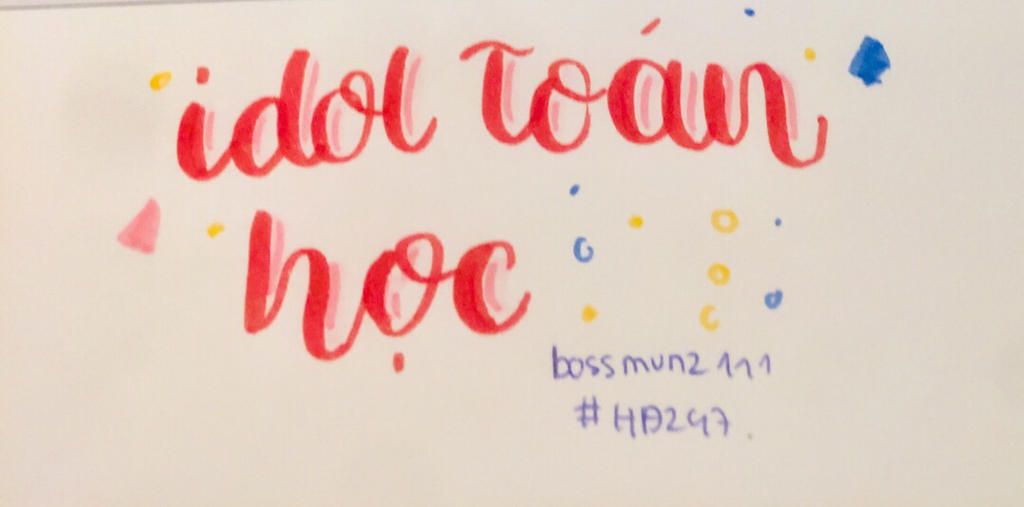 idol Toán
học
bossmunz111
#HĐ247